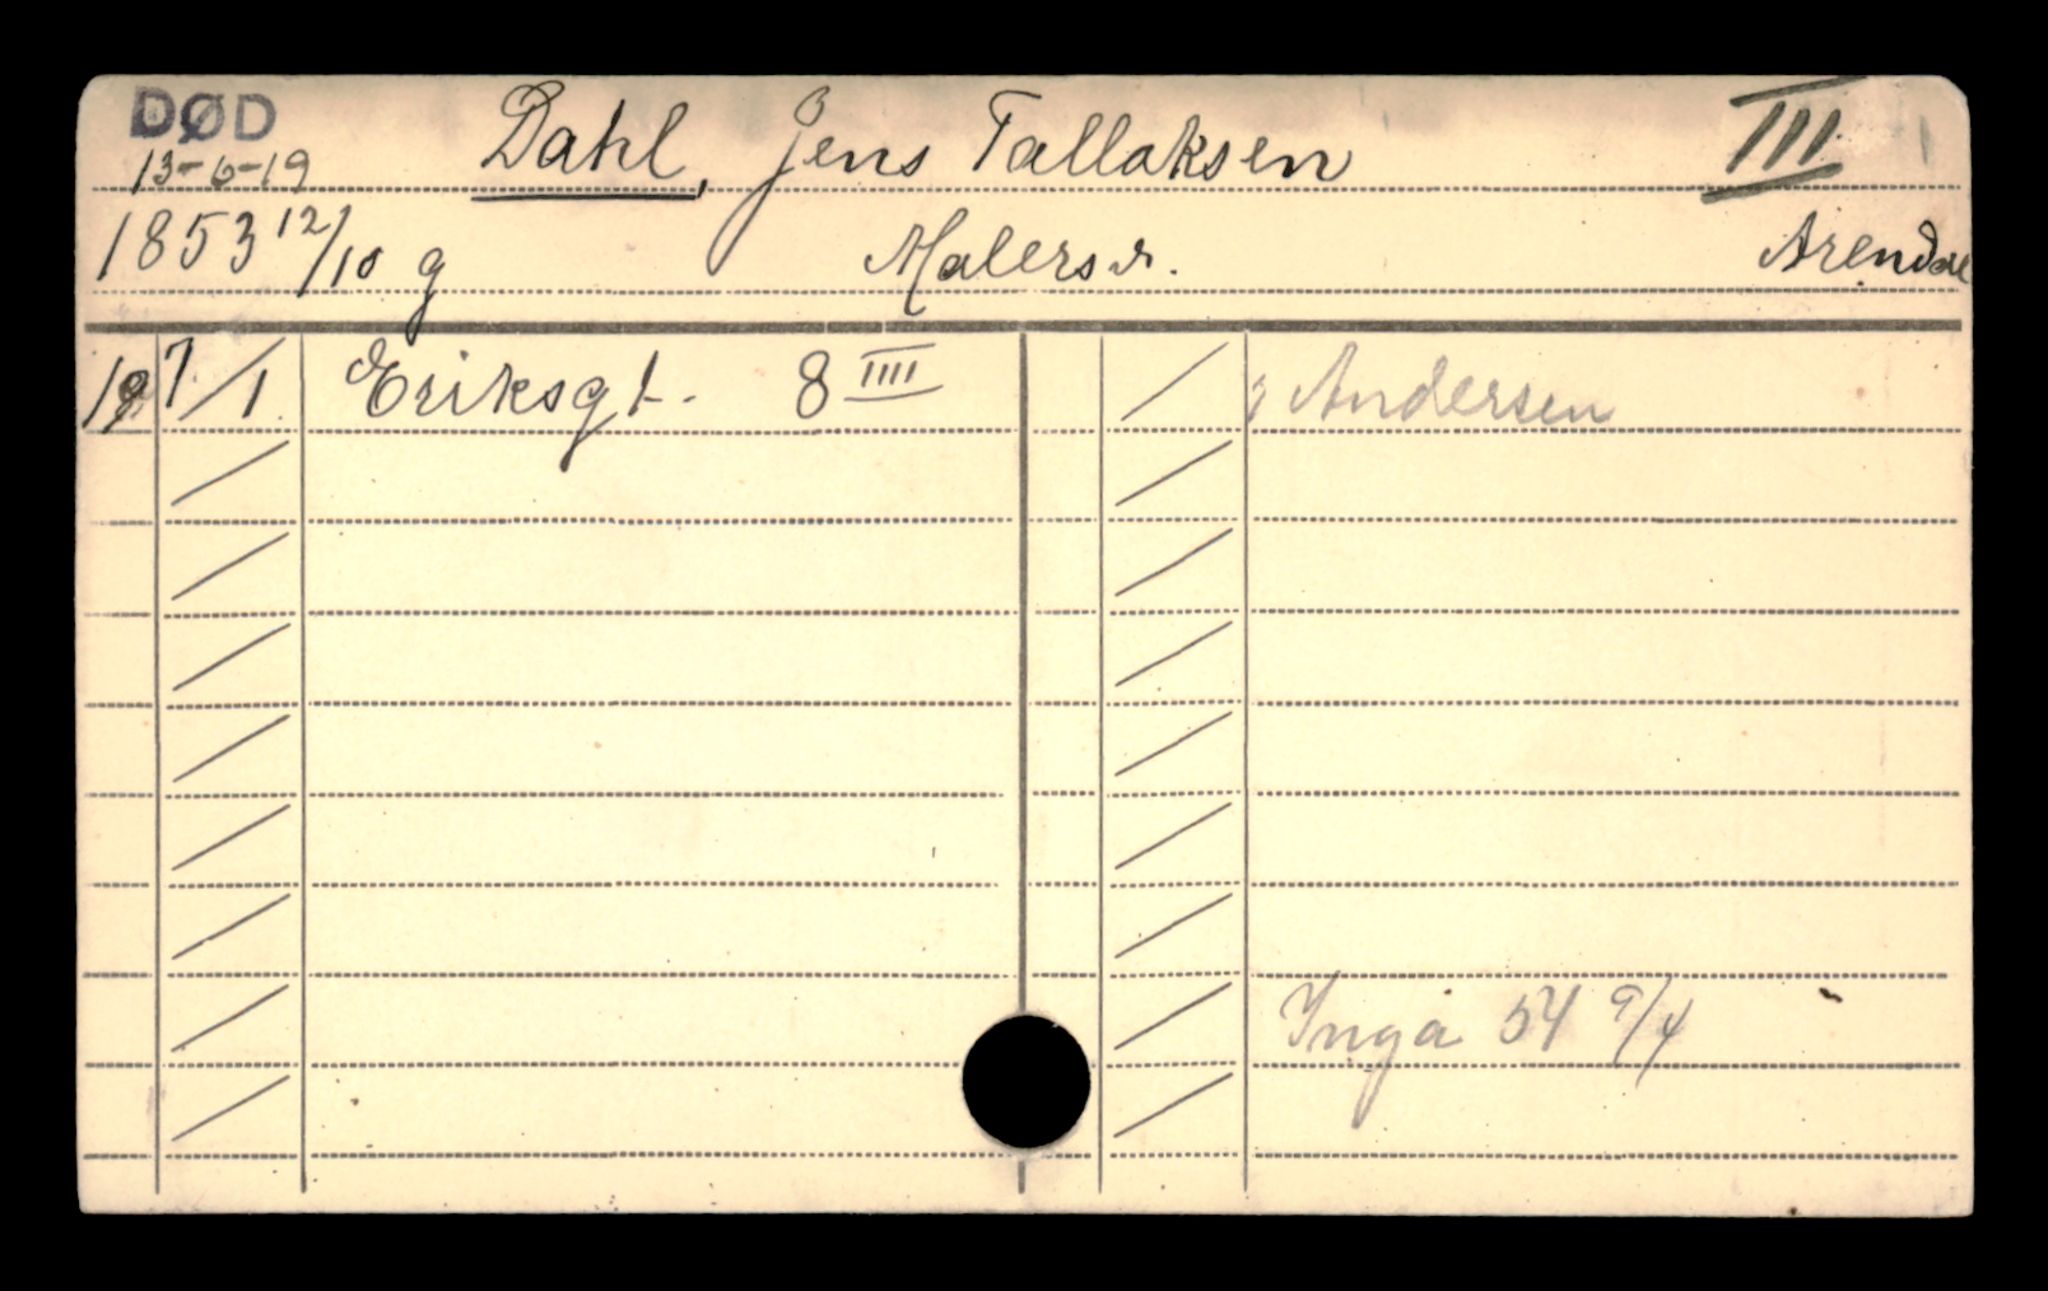 DØD
13-6-19 Dahl, Jens Tallaksen III
1853 12/10 g Malersv. Arendal
19 7/1 Eriksgt. 8 IIII Andersen
Inga 54 9/4